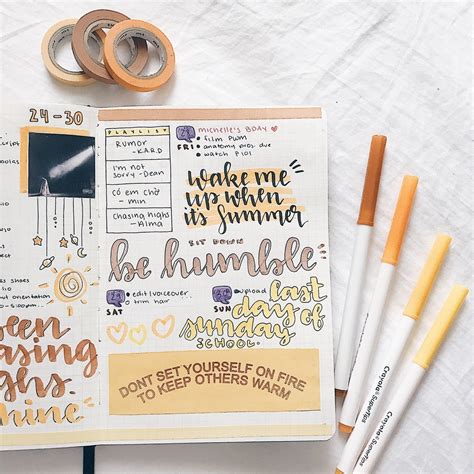 24-30
shoes
out orientation
- 5:00pm...
been
asing
ghs.
hine
PLAYLIST
RUMOR
- K.A.R.D
i'm not
sorry - Dean
Có em chờ
- min
Chasing highs
- Alma
FRI
michelle's BDAY
film PWM
anatomy proj due
watch P101
wake me
up when
it's summer
SIT DOWN
be humble
SAT
edit/voiceover
trim hair
SUN
upload
last
day of
sunday
SCHOOL
DONT SET YOURSELF ON FIRE
TO KEEP OTHERS WARM
Crayola SuperTips
Crayola SuperTips